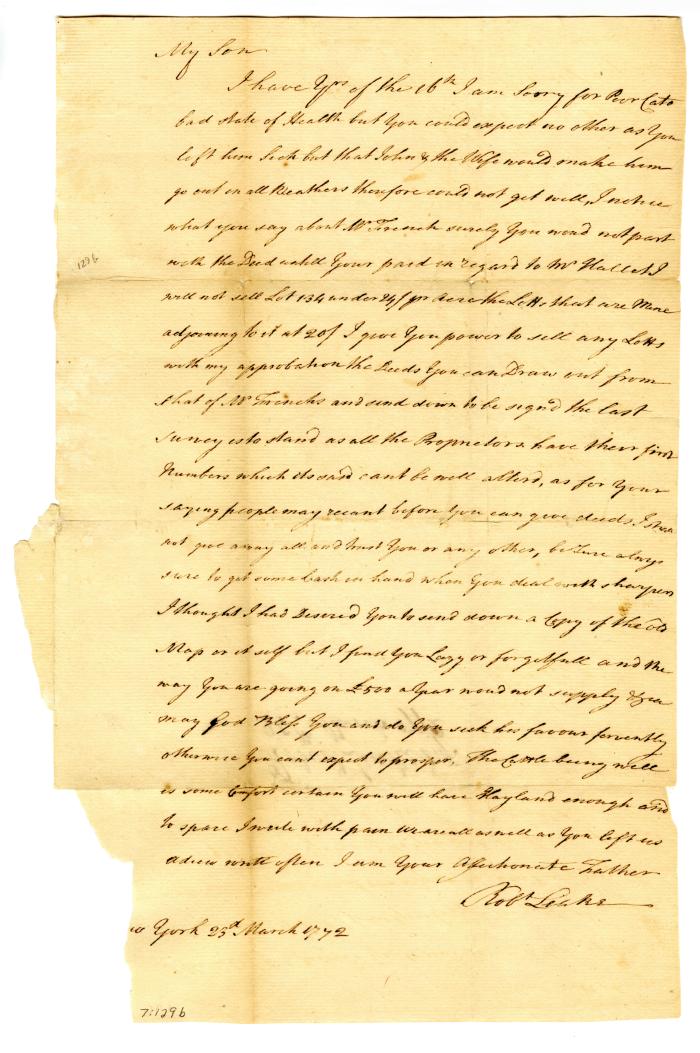 My Son
I have Yrs of the 16th I am Sorry for Poor Cato
bad state of Health but You could expect no other as You
left him Sick but that John & the Wife would make him
go out in all Weathers therefore could not get well, I notice
what you say about Mr French surely You woud not part
with the Deed untill Your paid in regard to Mr Hallet I
1296
will not sell Lot 134 under 24/ pr Acre the Lotts that are Mine
adjoining to it at 20/ I give You power to sell any Lotts
with my approbation the Deeds You can Draw out from
that of Mr Frenchs and send down to be signd the last
survey is to stand as all the Proprietors have their first
Numbers which its said cant be well alterd, as for Your
saying people may recant before You can give deeds, I
not give away all and trust You or any other, be Sure always
sure to get some Cash in hand when You deal with sharpers
I thought I had Desired You to send down a Copy of the old
Map or it self but I find You Lazy or forgetfull and the
way You are going on £500 a Year woud not supply
may God Bless You and do You seek his favour fervently
otherwise You cant expect to prosper, The Cattle being well
is some Comfort certain You will have Hayland enough and
to spare I write with pain We are all as well as You left us
adieu write often I am Your Afectionate Father
Robt Leake
w York 23d March 1772
7:1296